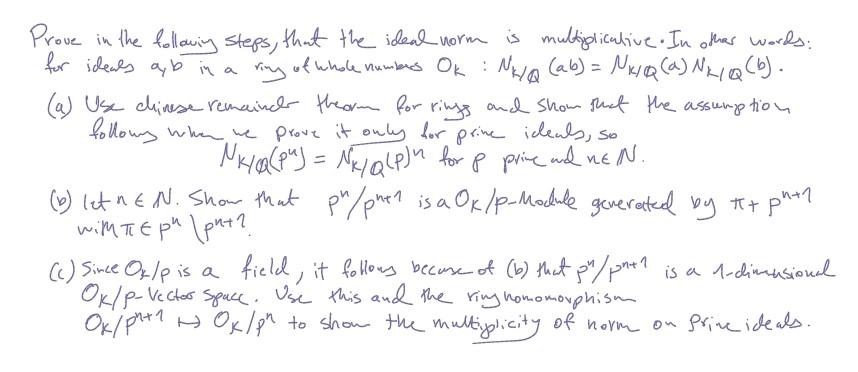 Prove in the following steps, that the ideal norm is multiplicative. In other words:
for ideals a, b in a ring of whole numbers O_K : N_{K/Q} (ab) = N_{K/Q}(a) N_{K/Q}(b).
(a) Use chinese remainder theorem for rings and show that the assumption
follows when we prove it only for prime ideals, so
N_{K/Q}(p^n) = N_{K/Q}(p)^n for p prime and n ∈ N.
(b) let n ∈ N. Show that p^n/p^{n+1} is a O_K/p-Module generated by π + p^{n+1}
with π ∈ p^n \ p^{n+1}.
(c) Since O_K/p is a field, it follows because of (b) that p^n/p^{n+1} is a 1-dimensional
O_K/p-Vector space. Use this and the ring homomorphism
O_K/p^{n+1} ↦ O_K/p^n to show the multiplicity of norm on prime ideals.